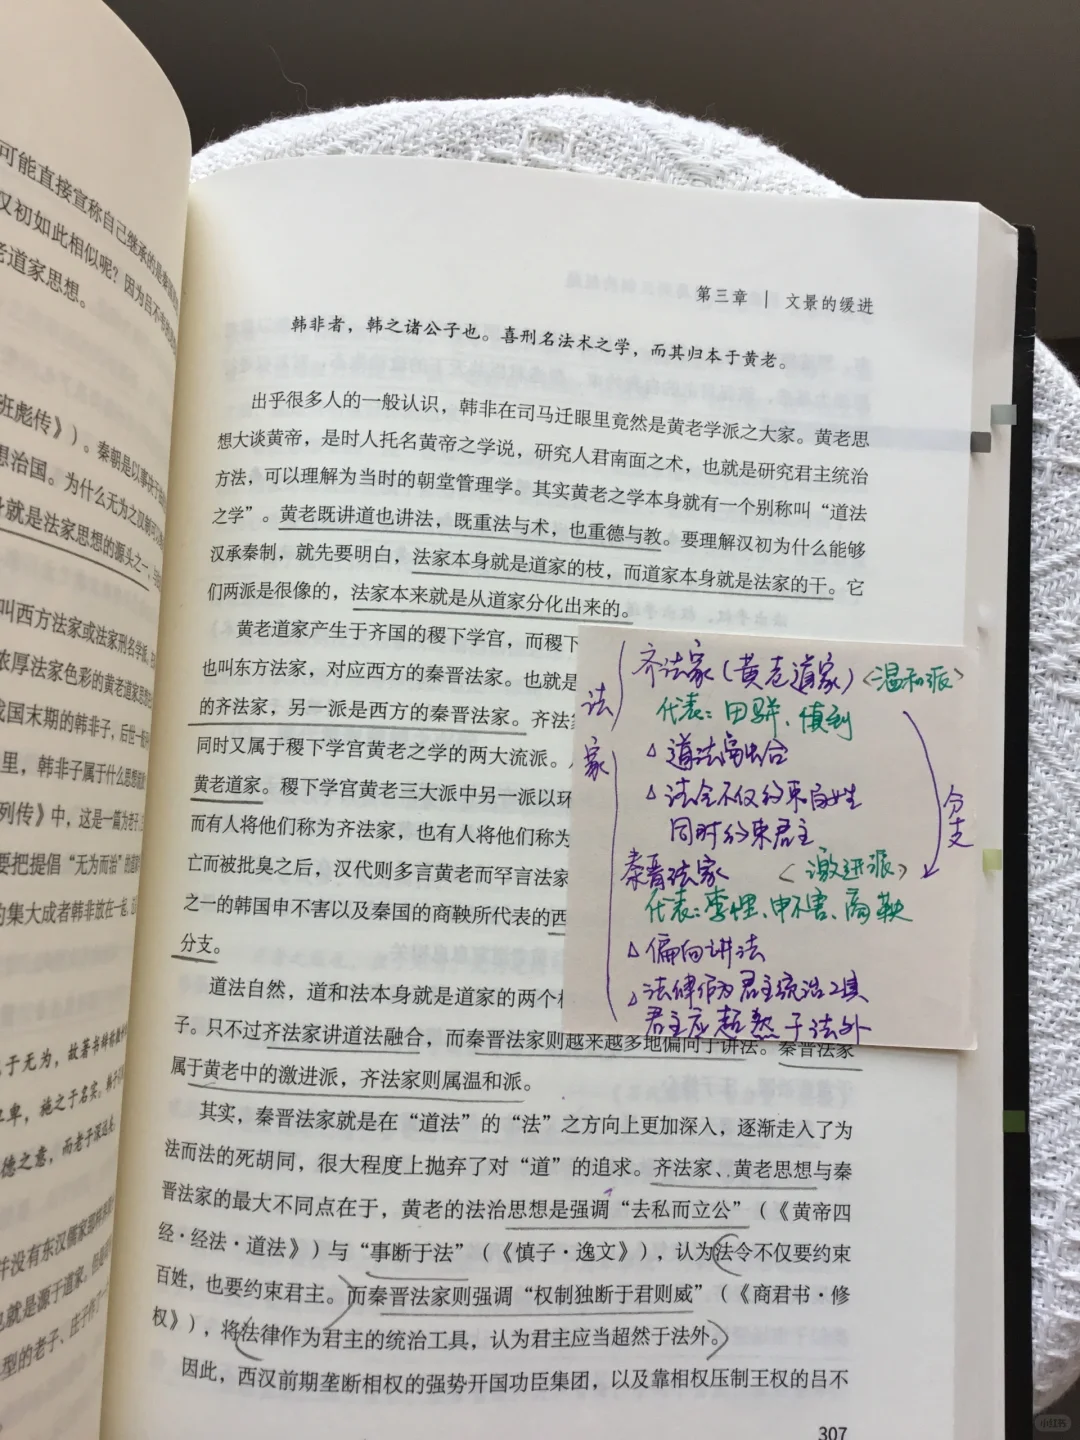 可能直接宣称自己继承的是秦
汉初如此相似呢？因为吕不韦
老道家思想。
班彪传》）。秦朝是以事决于
想治国。为什么无为之汉制可以
身就是法家思想的源头之一，
叫西方法家或法家刑名学派，
浓厚法家色彩的黄老道家思想
战国末期的韩非子，后世一般
里，韩非子属于什么思想
列传》中，这是一篇为老子
要把提倡“无为而治”的道
的集大成者韩非放在一起，
于无为，故著书辞称
卑，施之于名实。韩子
德之意，而老子深远
并没有东汉儒家那
也就是源于道家。但是
型的老子、庄子
第三章 | 文景的缓进
韩非者，韩之诸公子也。喜刑名法术之学，而其归本于黄老。
出乎很多人的一般认识，韩非在司马迁眼里竟然是黄老学派之大家。黄老思
想大谈黄帝，是时人托名黄帝之学说，研究人君南面之术，也就是研究君主统治
方法，可以理解为当时的朝堂管理学。其实黄老之学本身就有一个别称叫“道法
之学”。黄老既讲道也讲法，既重法与术，也重德与教。要理解汉初为什么能够
汉承秦制，就先要明白，法家本身就是道家的枝，而道家本身就是法家的干。它
们两派是很像的，法家本来就是从道家分化出来的。
黄老道家产生于齐国的稷下学宫，而稷下
也叫东方法家，对应西方的秦晋法家。也就是
的齐法家，另一派是西方的秦晋法家。齐法家
同时又属于稷下学宫黄老之学的两大流派。
黄老道家。稷下学宫黄老三大派中另一派以环
而有人将他们称为齐法家，也有人将他们称为
亡而被批臭之后，汉代则多言黄老而罕言法家
之一的韩国申不害以及秦国的商鞅所代表的西
分支。
道法自然，道和法本身就是道家的两个
子。只不过齐法家讲道法融合，而秦晋法家则越来越多地偏向于讲法。秦晋法家
属于黄老中的激进派，齐法家则属温和派。
其实，秦晋法家就是在“道法”的“法”之方向上更加深入，逐渐走入了为
法而法的死胡同，很大程度上抛弃了对“道”的追求。齐法家、黄老思想与秦
晋法家的最大不同点在于，黄老的法治思想是强调“去私而立公”（《黄帝四
经·经法·道法》）与“事断于法”（《慎子·逸文》），认为法令不仅要约束
百姓，也要约束君主。而秦晋法家则强调“权制独断于君则威”（《商君书·修
权》），将法律作为君主的统治工具，认为君主应当超然于法外。
因此，西汉前期垄断相权的强势开国功臣集团，以及靠相权压制王权的吕不
307
法家
齐法家（黄老道家）<温和派>
代表：田骈、慎到
△ 道法融合
△ 法令不仅约束百姓
同时约束君主
分支
秦晋法家 <激进派>
代表：李悝、申不害、商鞅
△ 偏向讲法
△ 法律作为君主统治工具
君主应超然于法外
小红书